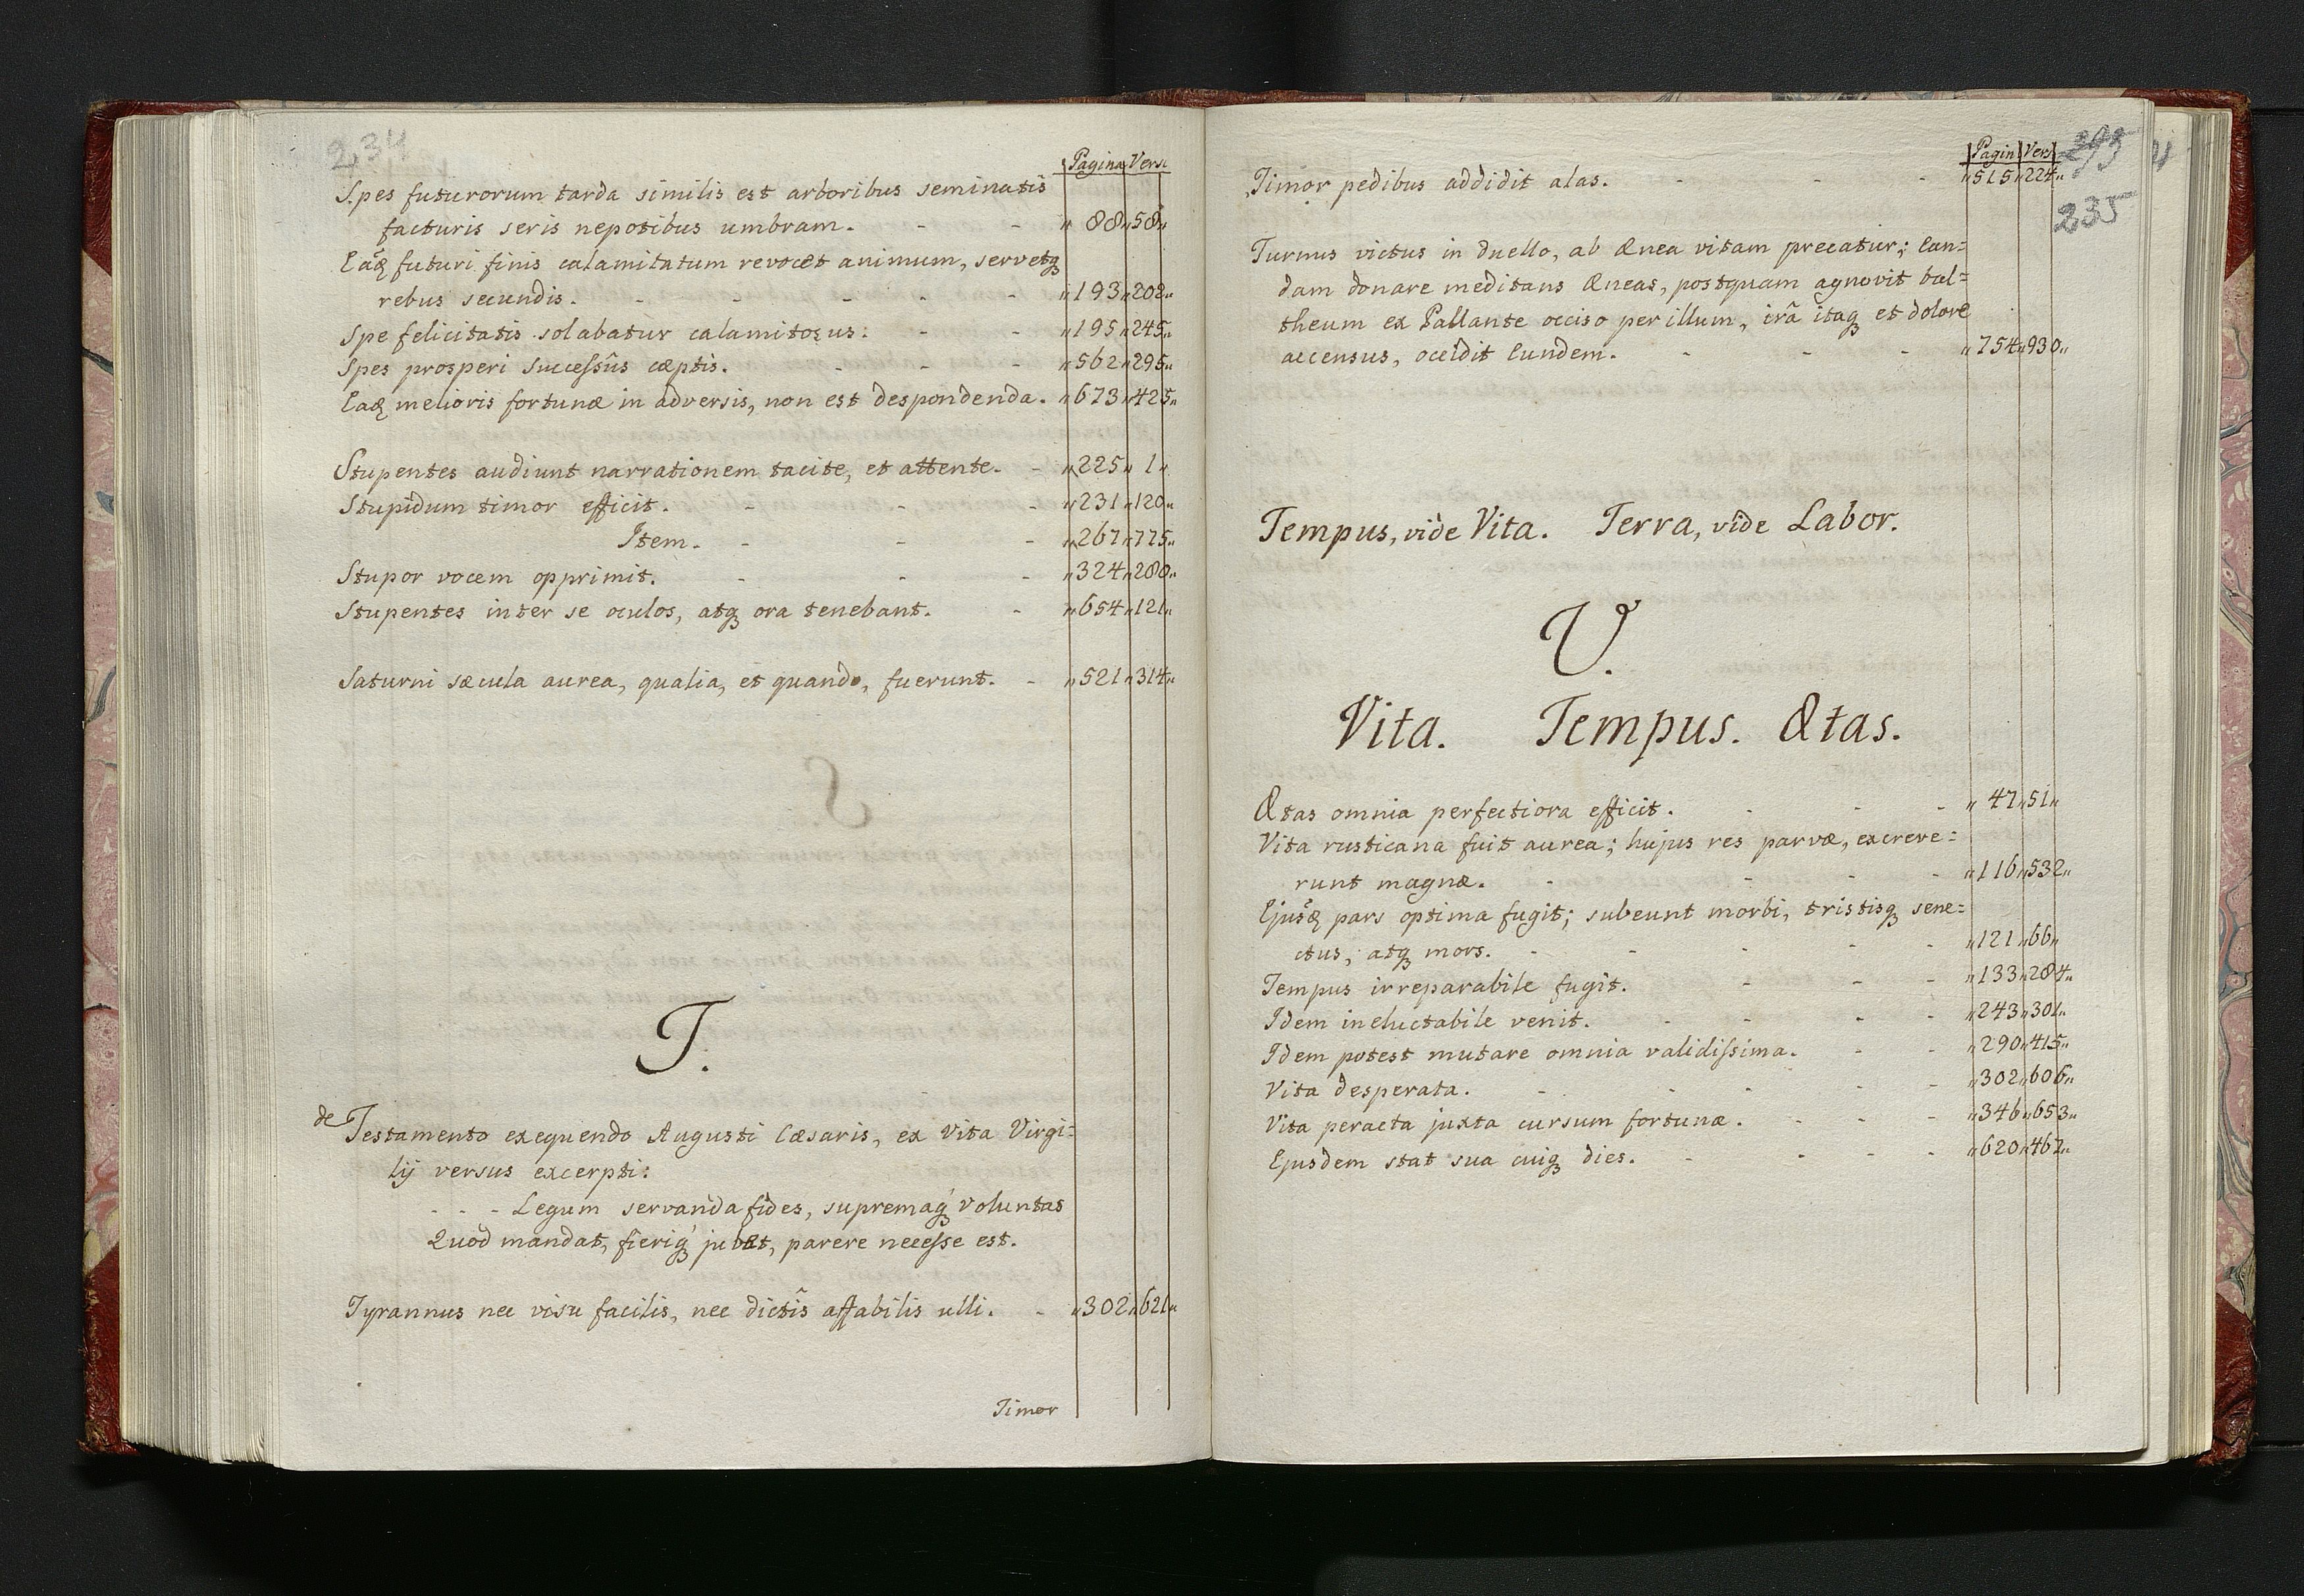 234
Pagina Versu
Spes futurorum tarda similis est arboribus seminatis
facturis seris nepotibus umbram. - - „ 88 „ 58 „
Eâdẽ futuri finis calamitatum revocet animum, servetq3
rebus secundis. - - - - - „ 193 „ 202 „
Spe felicitatis solabatur calamitosus. - - „ 195 „ 245 „
Spes prosperi successûs cæptis. - - - „ 562 „ 295 „
Eadẽ melioris fortunæ in adversis, non est despondenda. „ 673 „ 425 „
Stupentes audiunt narrationem tacite, et attente. - „ 225 „ 1 „
Stupidum timor efficit. - - - „ 231 „ 120 „
Item. - - - „ 267 „ 775 „
Stupor vocem opprimit. - - - „ 324 „ 280 „
Stupentes inter se oculos, atq3 ora tenebant. - „ 654 „ 121 „
Saturni sæcula aurea, qualia, et quando, fuerunt. - „ 521 „ 314 „
T.
de Testamento exequendo Augusti Cæsaris, ex Vita Virgi=
lij versus excerpti:
- - - Legum servanda fides, supremaq3 voluntas
Quod mandat, fieriq3 jubet, parere necesse est.
Tyrannus nec visu facilis, nec dictîs affabilis ulli. - „ 302 „ 621 „
Timor
Pagin Vers
235
Timor pedibus addidit alas. - - - „ 515 „ 224 „
Turnus victus in duello, ab Ænea vitam precatur; Ean=
dam donare meditans Æneas, postquam agnovit bal=
theum ex Pallante occiso per illum, irâ itaq3 et dolore
accensus, occîdit Eundem. - - - „ 754 „ 930 „
Tempus, vide Vita. Terra, vide Labor.
V.
Vita. Tempus. Ætas.
Ætas omnia perfectiora efficit. - - - „ 47 „ 51 „
Vita rusticana fuit aurea; hujus res parvæ, excreve=
runt magnæ. - - - - „ 116 „ 532 „
Ejusdẽ pars optima fugit; subeunt morbi, tristisq3 sene=
ctus, atq3 mors. - - - - - „ 121 „ 66 „
Tempus irreparabile fugit. - - - „ 133 „ 284 „
Idem ineluctabile venit. - - - - „ 243 „ 301 „
Idem potest mutare omnia validissima. - - „ 290 „ 415 „
Vita desperata. - - - - - „ 302 „ 606 „
Vita peracta juxta cursum fortunæ. - - - „ 346 „ 653 „
Ejusdem stat sua cuiq3 dies. - - - - „ 620 „ 467 „